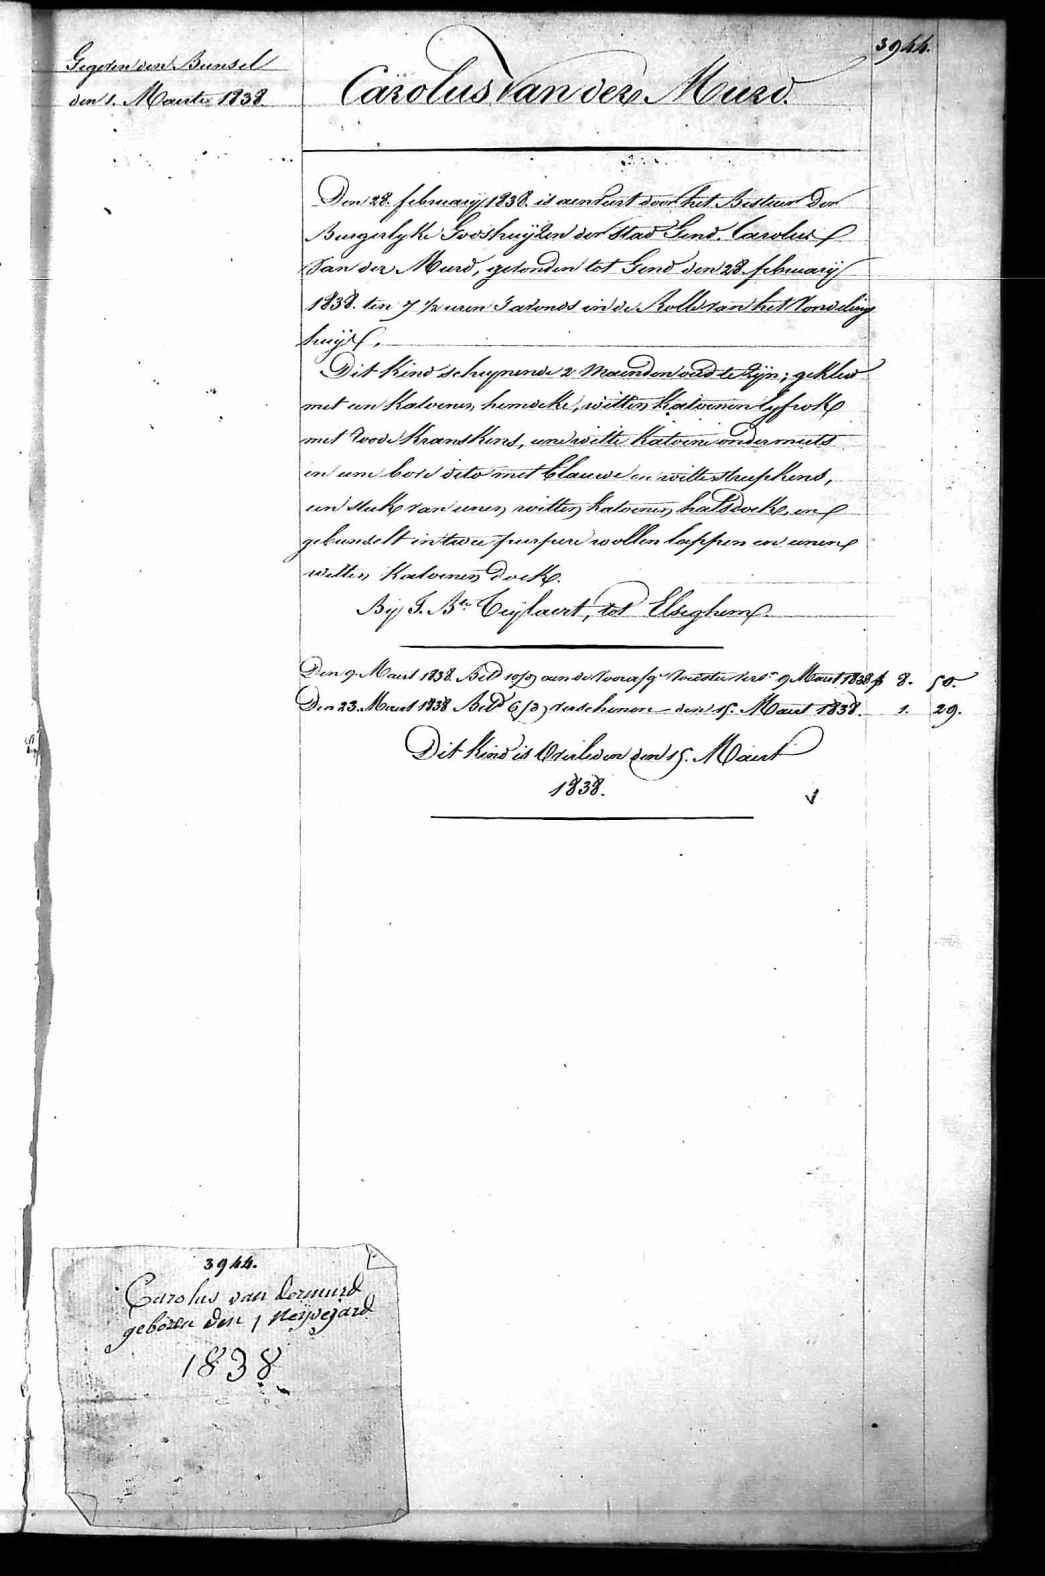 3944.
Gegeven den Bunsel
den 1. Maerte 1838
Carolus Van der Murd.
Den 28. february 1838. is aenveirt door het Bestuer der
Burgerlyke Godshuijzen der stad Gend. Carolus
Van der Murd, gevonden tot Gend den 28 february
1838. ten 7 1/2 uren s'avonds in de Rolle van het Vondeling
huijs.
Dit Kind schynende 2 Maenden oud te zyn; gekleed
met een Katoenen hemdeke, witten Katoenen lyfrok
met roode Kranskens, eene witte Katoene ondermuts
en eene bove dito met blauwe en witte streepkens,
een stuk van eenen witten Katoenen halsdoek, en
gebunselt in twee purpere wollen lappen en eenen
witten Katoenen doek.
By J. Bte. Ceylaert, tot Elseghem.
Den 9. Maert 1838. Beld aen de Vooraf 9 Maert 1838 f 8. 50.
Den 23. Maert 1838 Beld verschenen den 15. Maert 1838. 1. 29.
Dit Kind is Overleden den 15. Maert
1838.
3944.
Carolus van dermurd
geboren den 1 Neijvejard
1838